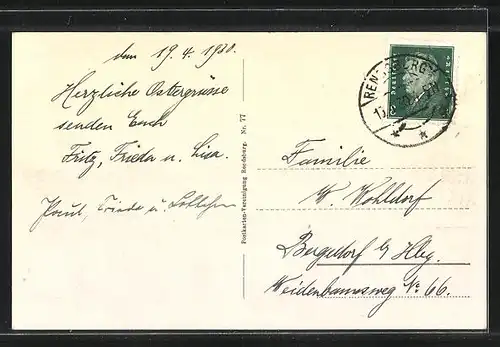 den 19.4.1930.
Herzliche Ostergrüsse
senden Euch
Fritz, Frieda u. Lisa.
Paul, Frieda u.
Postkarten-Vereinigung Rendsburg. Nr. 77
RENDSBURG
Familie
W. Wohldorf
Bergedorf b/ Hbg.
Weidenbaumsweg No 66.